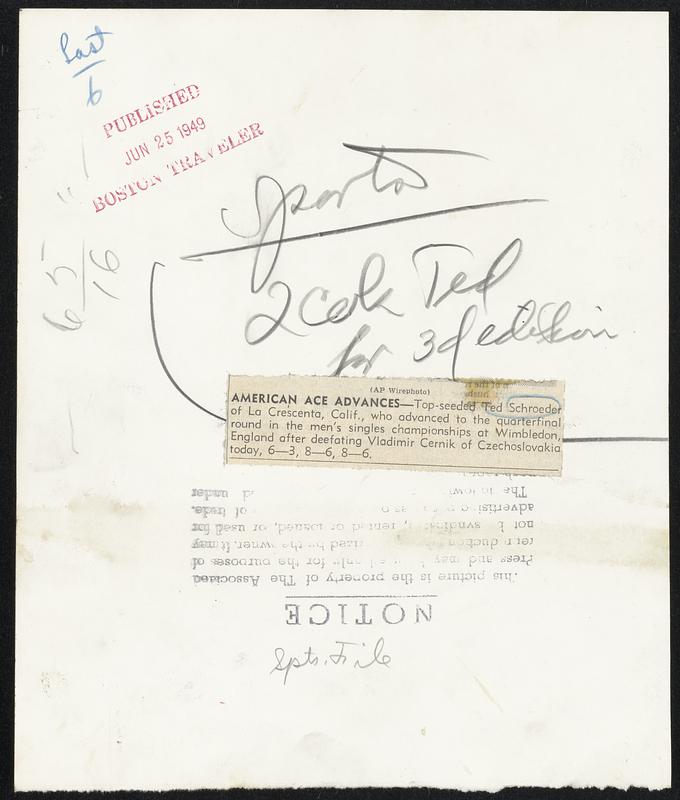 Last
6
PUBLISHED
JUN 25 1949
BOSTON TRAVELER
Sports
6 5/16 "
2 cols Ted
for 3d edition
(AP Wirephoto)
AMERICAN ACE ADVANCES—Top-seeded Ted Schroeder
of La Crescenta, Calif., who advanced to the quarterfinal
round in the men's singles championships at Wimbledon,
England after deefating Vladimir Cernik of Czechoslovakia
today, 6—3, 8—6, 8—6.
NOTICE
This picture is the property of The Associated
Press and may only for the purposes of
the owner. It may
not b syndicat , rented or loaned, or used for
advertising of trade.
The under
Spts. File